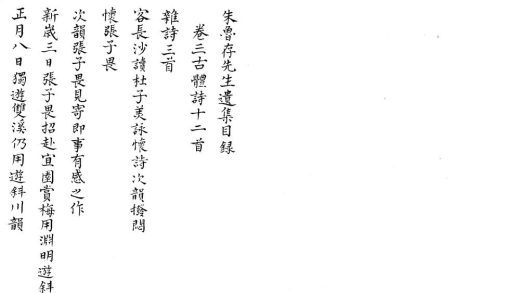 朱魯存先生遺集目録
卷三古體詩十二首
雜詩三首
客長沙讀杜子美詠懷詩次韻撥悶
懷張子畏
次韻張子畏見寄即事有感之作
新歲三日張子畏招赴宜園賞梅用淵明遊斜
正月八日獨遊雙溪仍用遊斜川韻